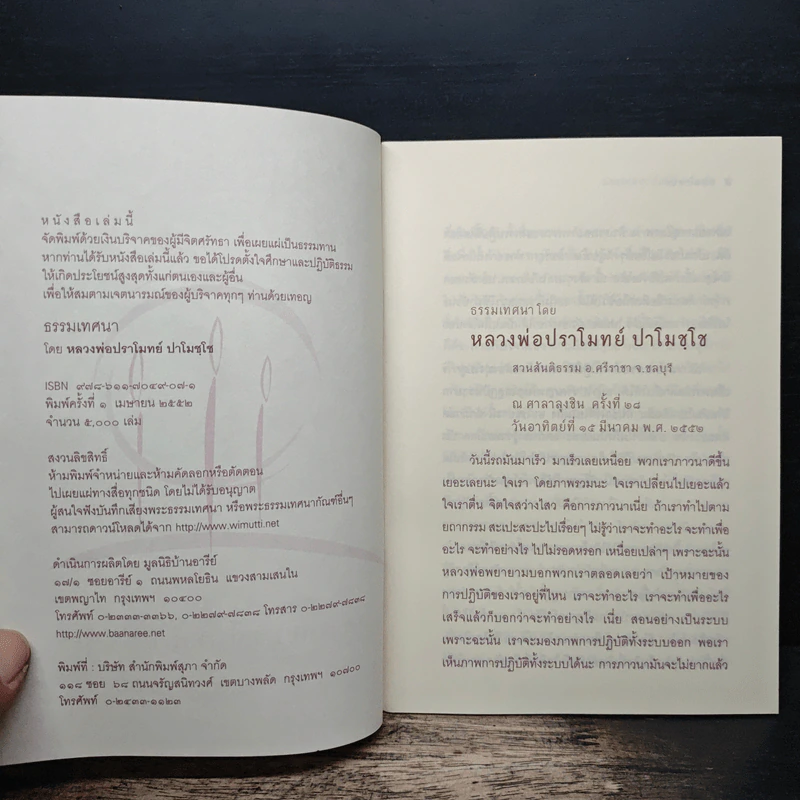 หนังสือเล่มนี้
จัดพิมพ์ด้วยเงินบริจาคของผู้มีจิตศรัทธา เพื่อเผยแผ่เป็นธรรมทาน
หากท่านได้รับหนังสือเล่มนี้แล้ว ขอได้โปรดตั้งใจศึกษาและปฏิบัติธรรม
ให้เกิดประโยชน์สูงสุดทั้งแก่ตนเองและผู้อื่น
เพื่อให้สมตามเจตนารมณ์ของผู้บริจาคทุกๆ ท่านด้วยเทอญ
ธรรมเทศนา
โดย หลวงพ่อปราโมทย์ ปาโมชฺโช
ISBN ๙๗๘-๖๑๑-๗๐๔๙-๐๗-๑
พิมพ์ครั้งที่ ๑ เมษายน ๒๕๕๒
จำนวน ๕,๐๐๐ เล่ม
สงวนลิขสิทธิ์
ห้ามพิมพ์จำหน่ายและห้ามคัดลอกหรือตัดตอน
ไปเผยแผ่ทางสื่อทุกชนิด โดยไม่ได้รับอนุญาต
ผู้สนใจฟังบันทึกเสียงพระธรรมเทศนา หรือพระธรรมเทศนากัณฑ์อื่นๆ
สามารถดาวน์โหลดได้จาก http://www.wimutti.net
ดำเนินการผลิตโดย มูลนิธิบ้านอารีย์
๑๗/๑ ซอยอารีย์ ๑ ถนนพหลโยธิน แขวงสามเสนใน
เขตพญาไท กรุงเทพฯ ๑๐๔๐๐
โทรศัพท์ ๐-๒๓๓๓-๓๓๖๖, ๐-๒๒๗๙-๗๘๓๘ โทรสาร ๐-๒๒๗๙-๗๘๓๘
http://www.baanaree.net
พิมพ์ที่ : บริษัท สำนักพิมพ์สุภา จำกัด
๑๑๘ ซอย ๖๘ ถนนจรัญสนิทวงศ์ เขตบางพลัด กรุงเทพฯ ๑๐๗๐๐
โทรศัพท์ ๐-๒๔๓๓-๑๑๒๓
ธรรมเทศนาโดย
หลวงพ่อปราโมทย์ ปาโมชฺโช
สวนสันติธรรม อ.ศรีราชา จ.ชลบุรี
ณ ศาลาลุงชิน ครั้งที่ ๒๘
วันอาทิตย์ที่ ๑๕ มีนาคม พ.ศ. ๒๕๕๒
วันนี้รถมันมาเร็ว มาเร็วเลยเหนื่อย พวกเราภาวนาดีขึ้น
เยอะเลยนะ ใจเรา โดยภาพรวมนะ ใจเราเปลี่ยนไปเยอะแล้ว
ใจเราตื่น จิตใจสว่างไสว คือการภาวนาเนี่ย ถ้าเราทำไปตาม
ยถากรรม สะเปะสะปะไปเรื่อยๆ ไม่รู้ว่าเราจะทำอะไร จะทำเพื่อ
อะไร จะทำอย่างไร ไปไม่รอดหรอก เหนื่อยเปล่าๆ เพราะฉะนั้น
หลวงพ่อพยายามบอกพวกเราตลอดเลยว่า เป้าหมายของ
การปฏิบัติของเราอยู่ที่ไหน เราจะทำอะไร เราจะทำเพื่ออะไร
เสร็จแล้วก็บอกว่าจะทำอย่างไร เนี่ย สอนอย่างเป็นระบบ
เพราะฉะนั้น เราจะมองภาพการปฏิบัติทั้งระบบออก พอเรา
เห็นภาพการปฏิบัติทั้งระบบได้นะ การภาวนามันจะไม่ยากแล้ว